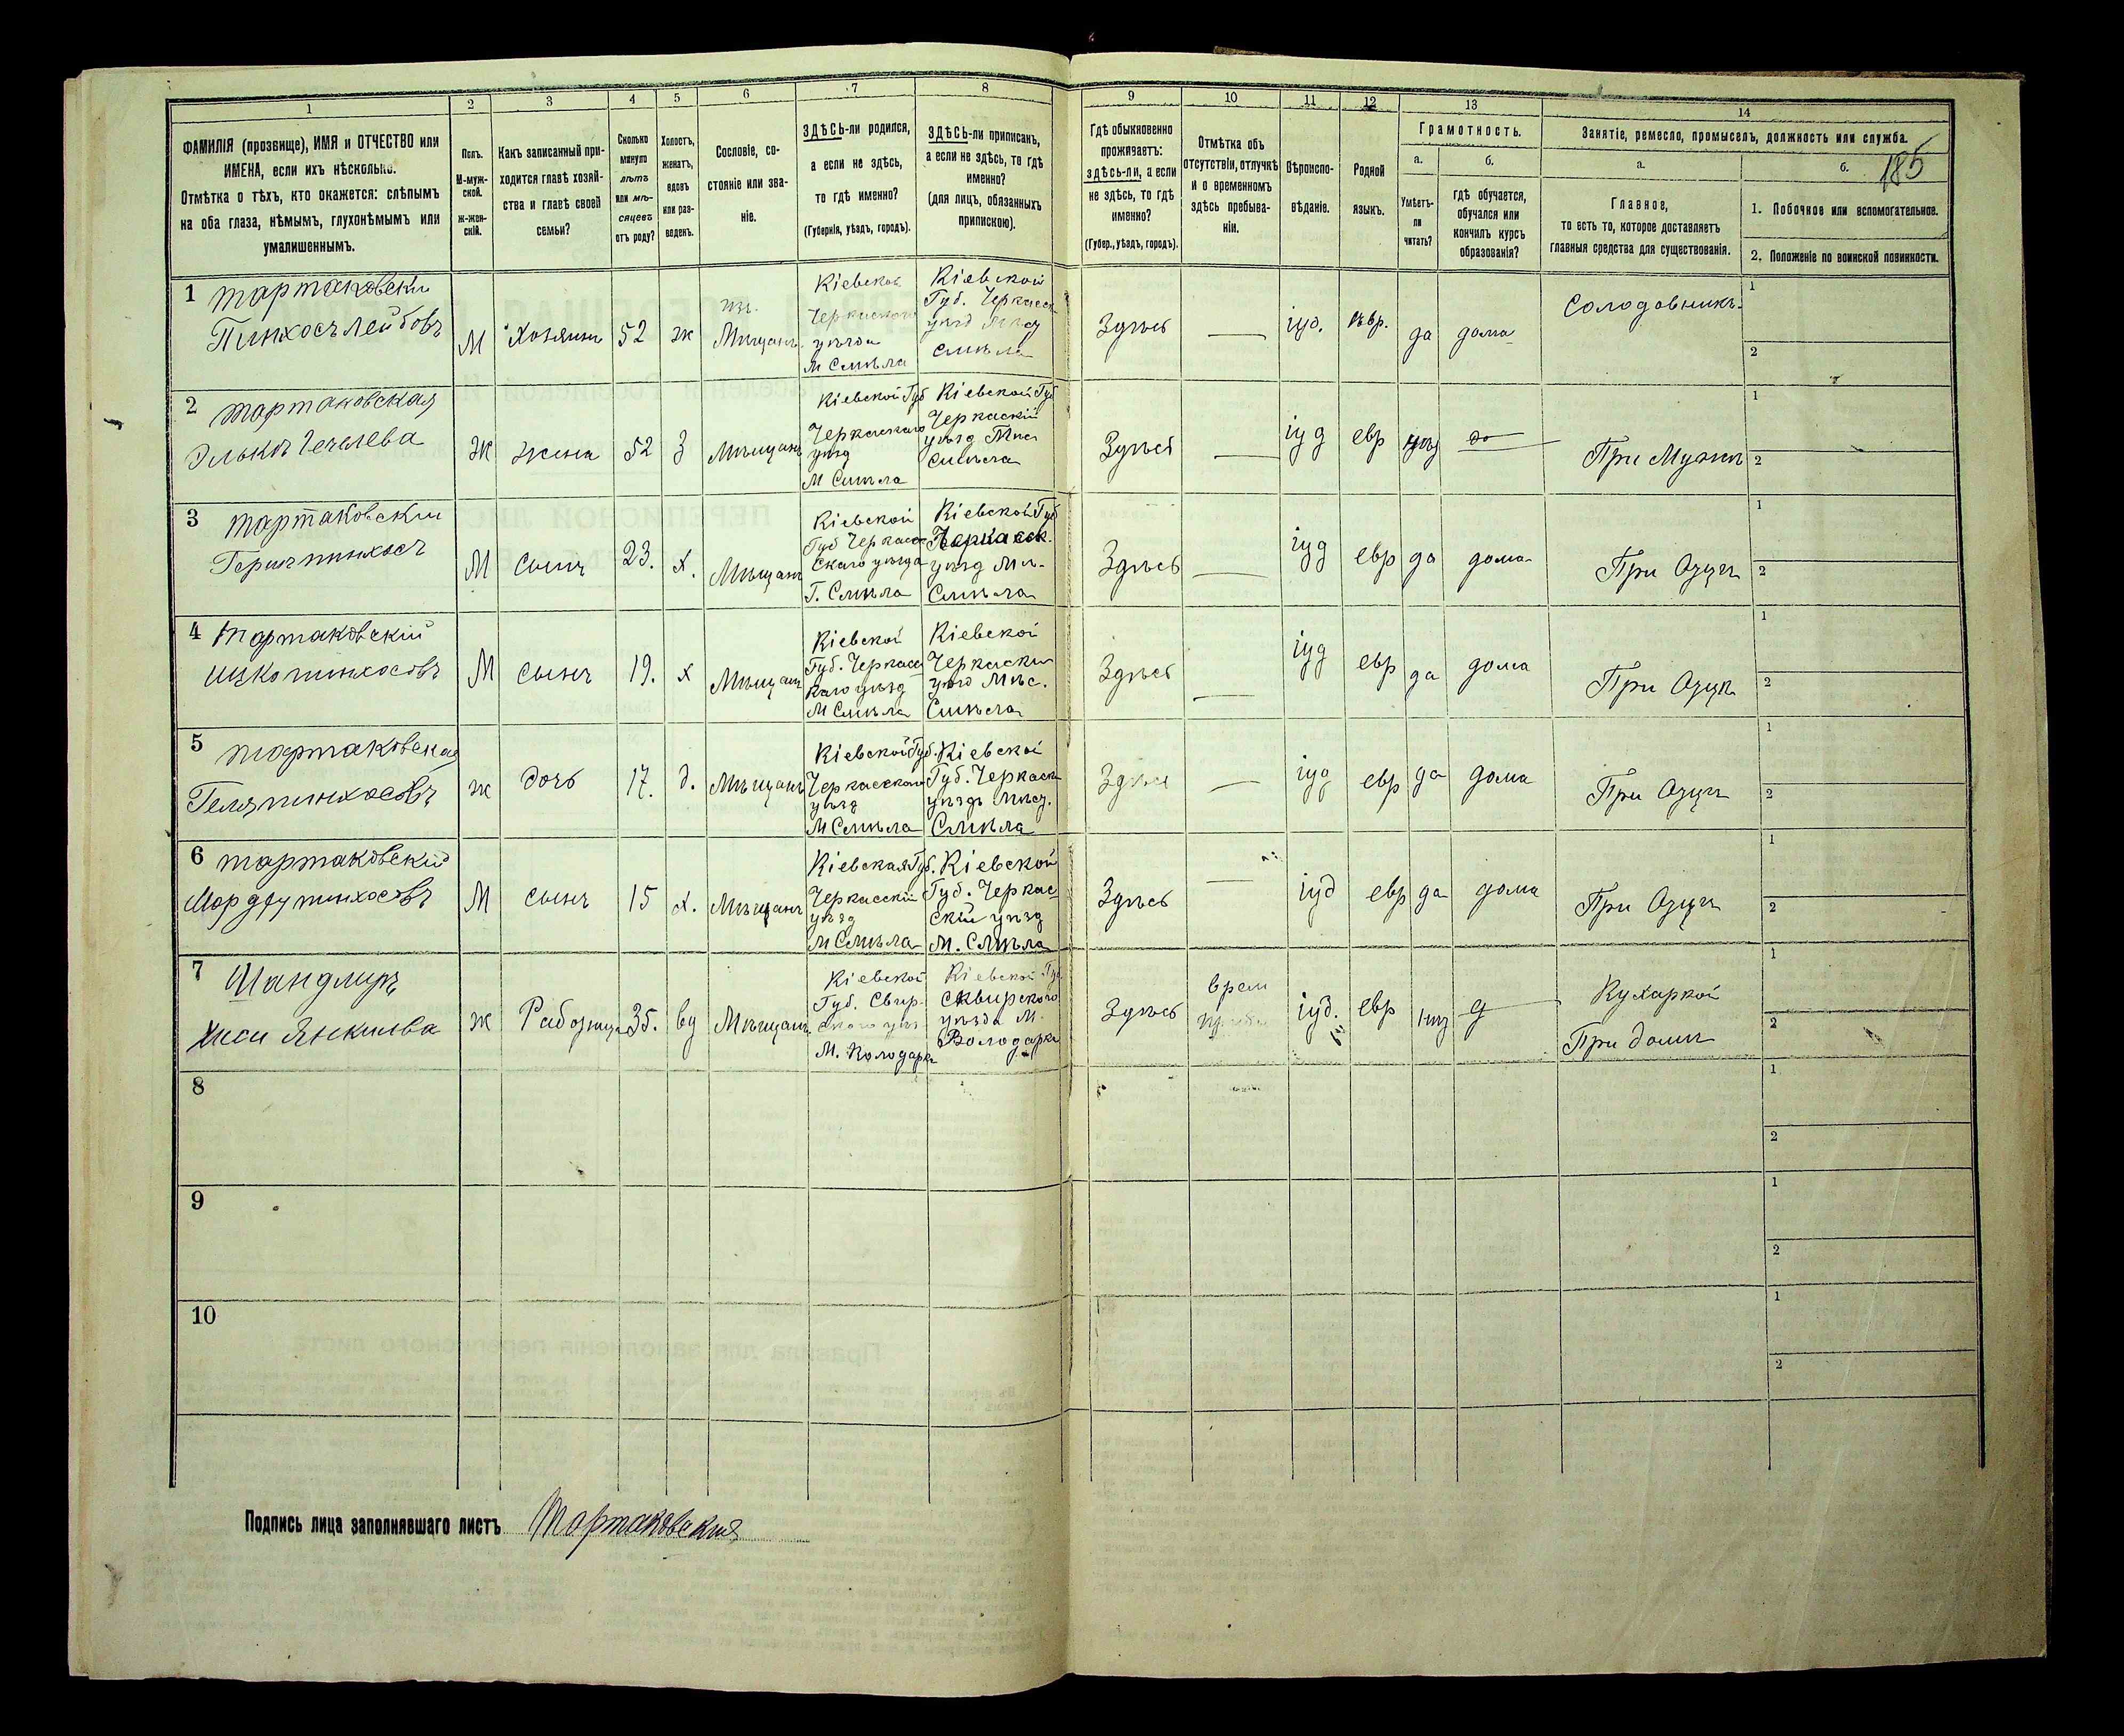 1 2 3 4 5 6 7 8 9 10 11 12 13 14
ФАМИЛІЯ (прозвище), ИМЯ и ОТЧЕСТВО или
ИМЕНА, если ихъ нѣсколько.
Отмѣтка о тѣхъ, кто окажется: слѣпымъ
на оба глаза, нѣмымъ, глухонѣмымъ или
умалишеннымъ.
Полъ.
М-муж-
ской.
Ж-жен-
скій.
Какъ записанный при-
ходится главѣ хозяй-
ства и главѣ своей
семьи?
Сколько
минуло
лѣтъ
или мѣ-
сяцевъ
отъ роду?
Холостъ,
женатъ,
вдовъ
или раз-
веденъ.
Сословіе, со-
стояніе или зва-
ніе.
ЗДѢСЬ-ли родился,
а если не здѣсь,
то гдѣ именно?
(Губернія, уѣздъ, городъ).
ЗДѢСЬ-ли приписанъ,
а если не здѣсь, то гдѣ
именно?
(для лицъ, обязанныхъ
припискою).
Гдѣ обыкновенно
проживаетъ:
здѣсь-ли, а если
не здѣсь, то гдѣ
именно?
(Губер., уѣздъ, городъ).
Отмѣтка объ
отсутствіи, отлучкѣ
и о временномъ
здѣсь пребыва-
ніи.
Вѣроиспо-
вѣданіе.
Родной
языкъ.
Грамотность.
а.
Умѣетъ-
ли
читать?
б.
гдѣ обучается,
обучался или
кончилъ курсъ
образованія?
Занятіе, ремесло, промыселъ, должность или служба.
185
а.
Главное,
то есть то, которое доставляетъ
главныя средства для существованія.
б.
1. Побочное или вспомогательное.
2. Положеніе по воинской повинности.
1 Тартаковски
Пинхосъ Лейбовъ
М
Хозяинъ
52
ж
Мѣщанъ
Кіевской
Черкаскаго
уѣзда
М Смѣла
Кіевской
Губ. Черкасск
уѣзд
Смѣла
Здѣсь
—
іуд.
Евр.
да
дома
Солодовникъ
1
2
2 Тартаковская
Элька
Ж
жена
52
З
Мѣщанъ
Кіевской Губ
Черкаскаго
уѣзд
М Смѣла
Кіевской Губ
Черкаскій
уѣзд
Смѣла
Здѣсь
—
іуд
евр
При Мужѣ
1
2
3 Тартаковски
М
Сынъ
23.
х.
Мѣщанъ
Кіевской
Губ Черкас
скаго уѣзда
Г. Смѣла
Кіевской Губ
Черкасск.
уѣзд Мѣ.
Смѣла
Здѣсь
—
іуд
евр
да
дома
При Отцѣ
1
2
4 Тартаковскій
Ицко Пинхосовъ
М
сынъ
19.
х
Мѣщанъ
Кіевской
Губ. Черкасс
каго уѣзд
М Смѣла
Кіевской
Черкаски
уѣзд Мѣс.
Смѣла
Здѣсь
—
іуд
евр
да
дома
При Отцѣ
1
2
5 Тартаковская
Геля Пинхосовъ
ж
дочь
17.
д.
Мѣщанъ
Кіевской Губ.
Черкасскаго
уѣзд
М Смѣла
Кіевской
Губ. Черкаск
уѣздъ Мѣст.
Смѣла
Здѣсь
—
іуд
евр
да
дома
При Отцѣ
1
2
6 Тартаковскій
Мордху Пинхосовъ
М
сынъ
15
х.
Мѣщанъ
Кіевская Губ.
Черкасскій
уѣзд
М Смѣла
Кіевской
Губ. Черкас-
скій уѣзд
М. Смѣла
Здѣсь
—
іуд
евр
да
дома
При Отцѣ
1
2
7 Шандлиръ
Хиси Янкилева
ж
Работница
35.
вд
Мѣщан.
Кіевской
Губ. Сквир
скаго уѣз
М. Володарка
Кіевской Губ
Сквирскаго
уѣзда М.
Володарка
Здѣсь
врем
іуд.
евр
Кухаркой
При домѣ
1
2
8
1
2
9
1
2
10
1
2
Подпись лица заполнявшаго листъ Тартаковскій